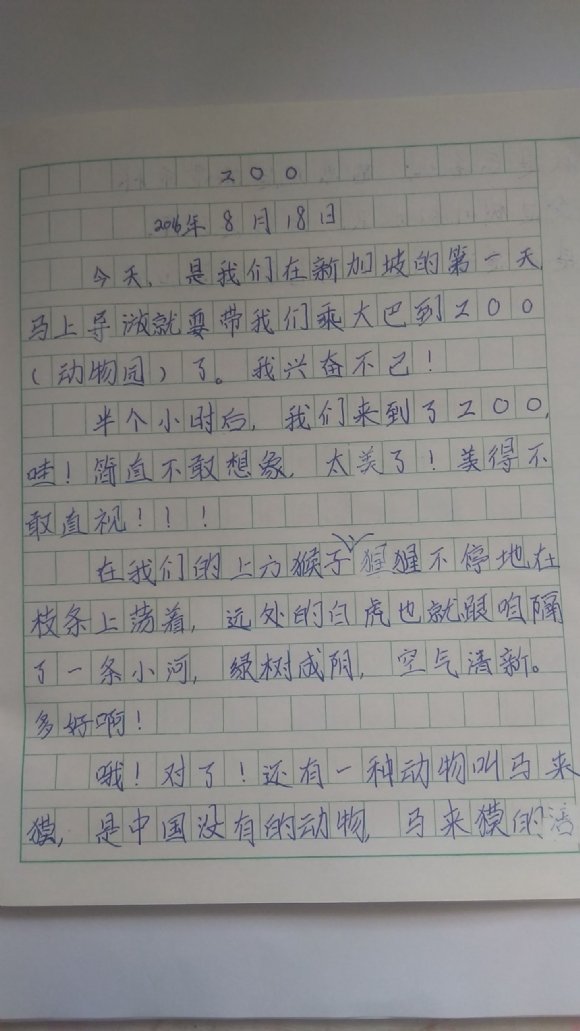 ZOO
2016年8月18日
今天，是我们在新加坡的第一天
马上导游就要带我们乘大巴到ZOO
（动物园）了。我兴奋不已！
半个小时后，我们来到了ZOO，
哇！简直不敢想象，太美了！美得不
敢直视！！！
在我们的上方猴子、猩猩不停地在
枝条上荡着，远处的白虎也就跟咱隔
了一条小河，绿树成阴，空气清新。
多好啊！
哦！对了！还有一种动物叫马来
獏，是中国没有的动物，马来獏的